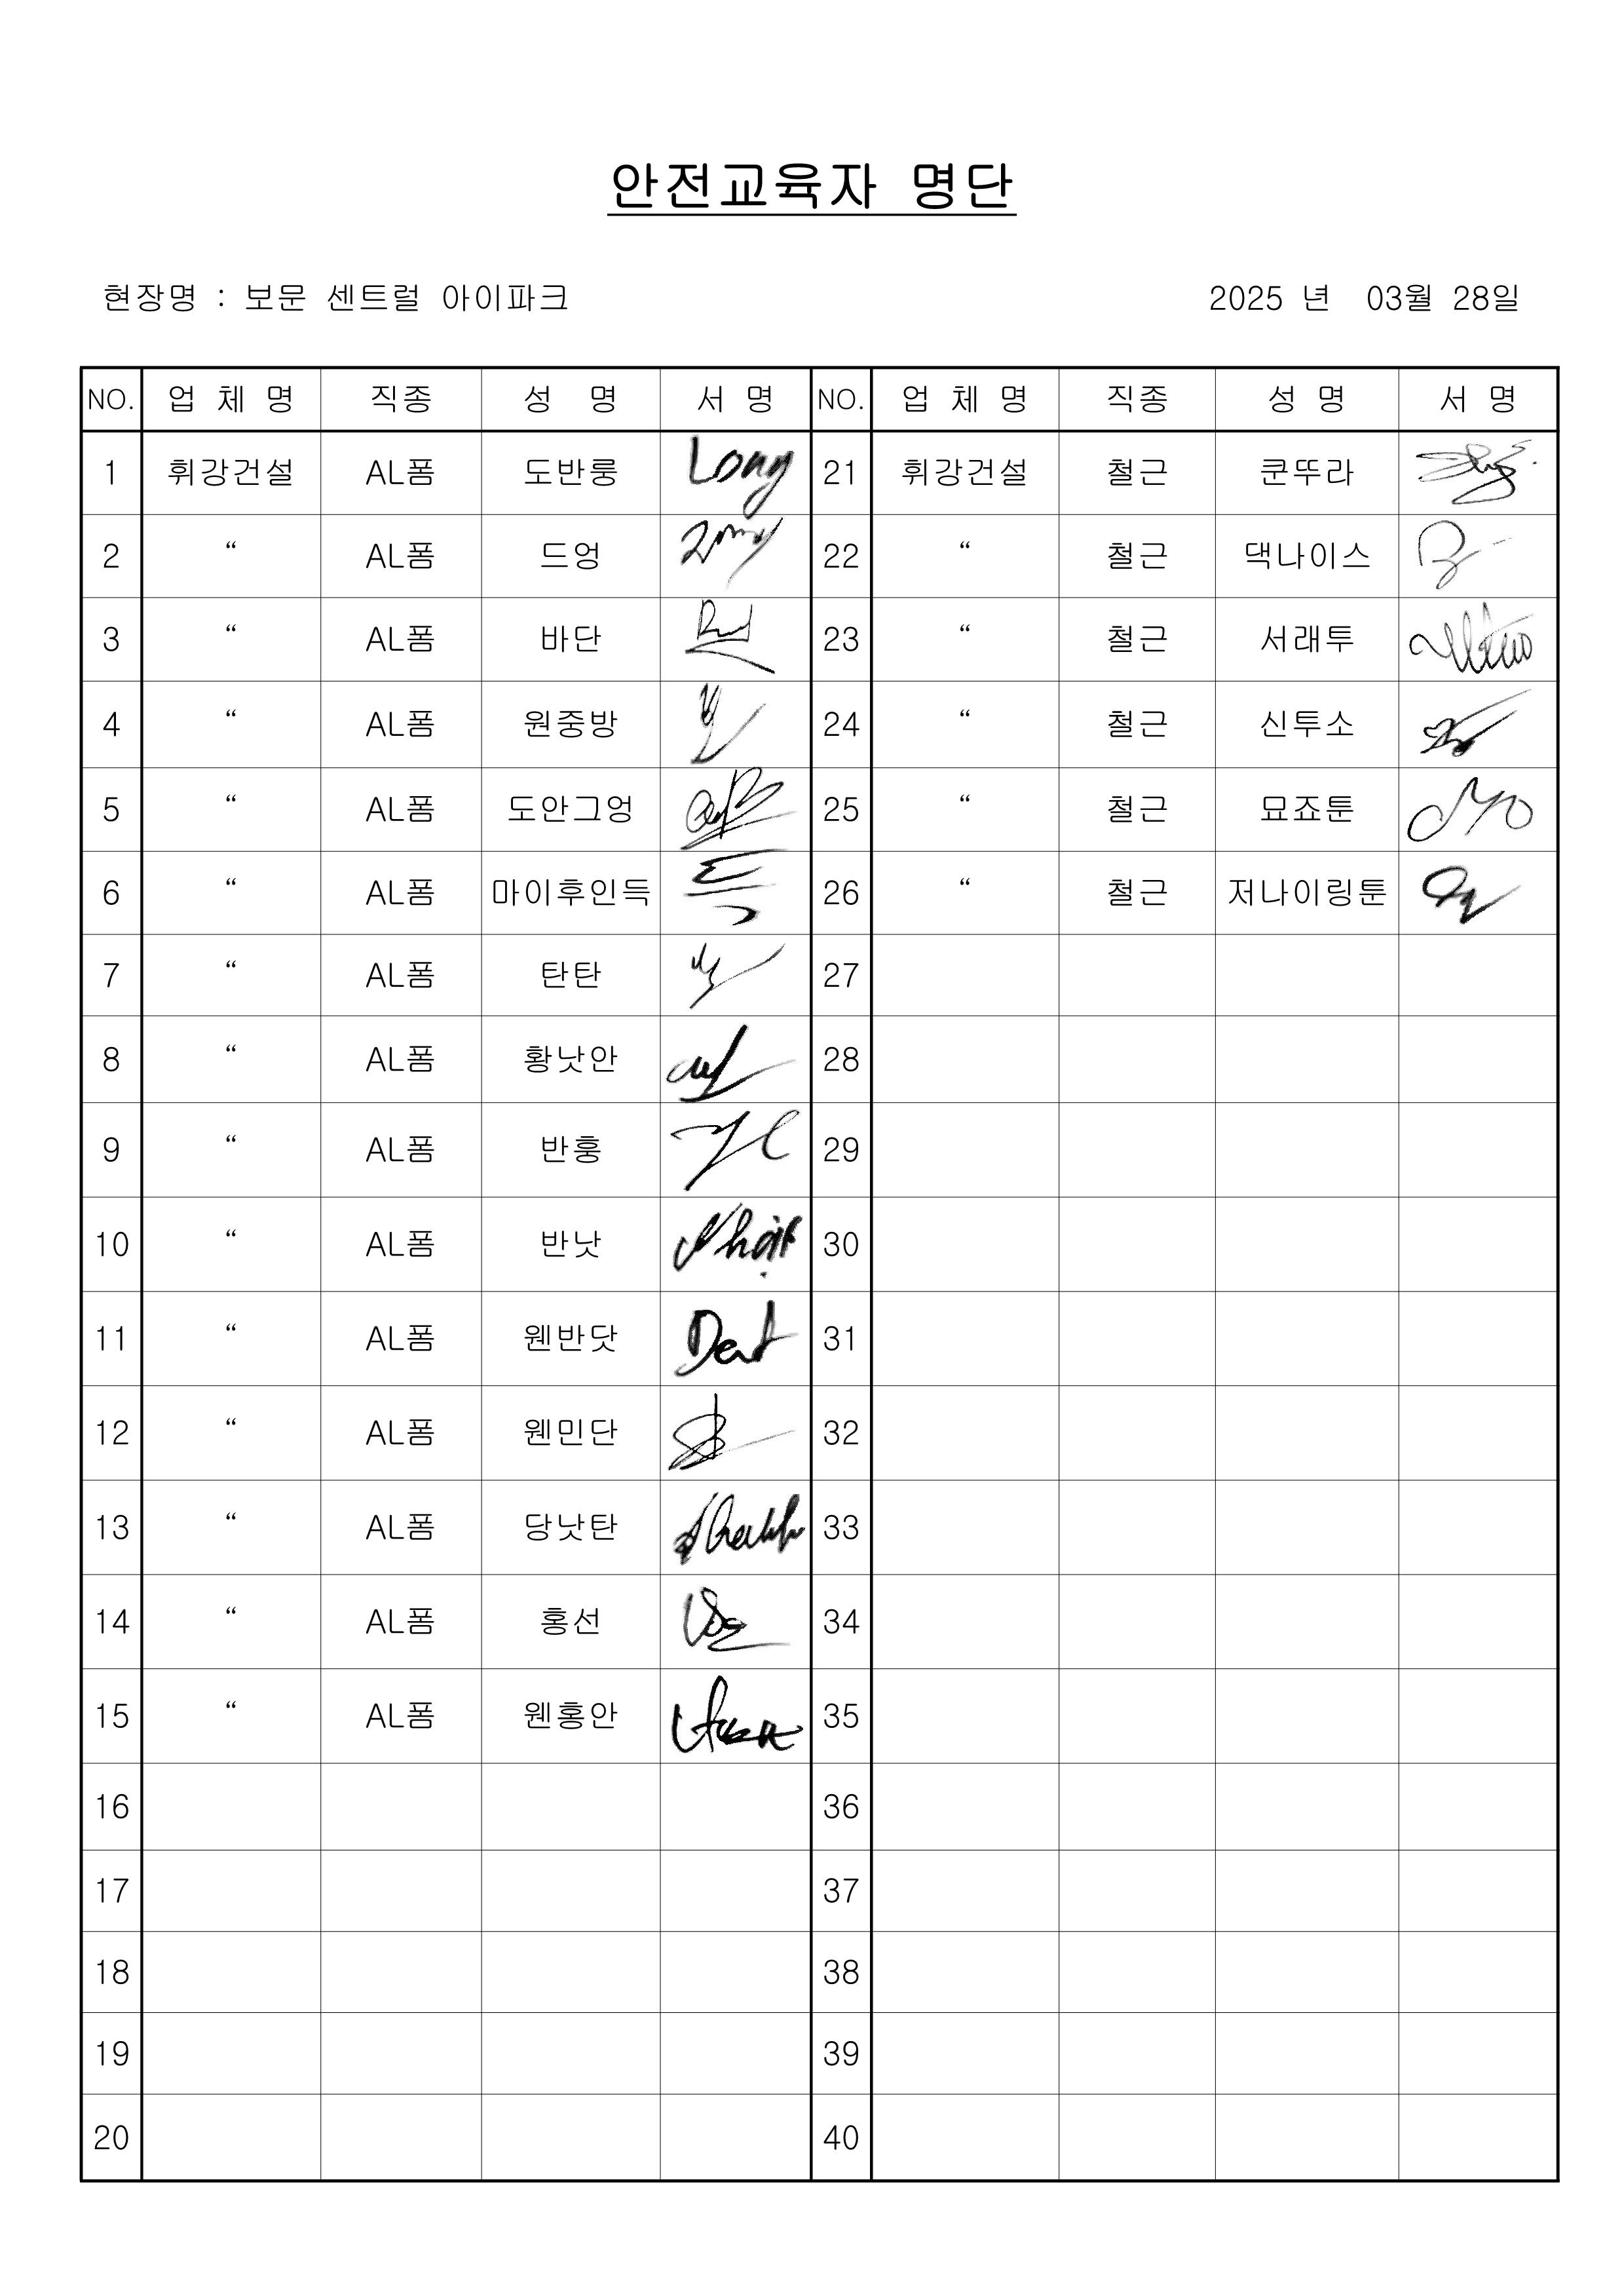 안전교육자 명단
현장명 : 보문 센트럴 아이파크 2025 년 03월 28일
NO. 업 체 명 직종 성 명 서 명 NO. 업 체 명 직종 성 명 서 명
1 휘강건설 AL폼 도반룽 Long 21 휘강건설 철근 쿤뚜라
2 “ AL폼 드엉 22 “ 철근 댁나이스
3 “ AL폼 바단 23 “ 철근 서래투
4 “ AL폼 원중방 24 “ 철근 신투소
5 “ AL폼 도안그엉 25 “ 철근 묘죠툰
6 “ AL폼 마이후인득 득 26 “ 철근 저나이링툰
7 “ AL폼 탄탄 27
8 “ AL폼 황낫안 28
9 “ AL폼 반훙 29
10 “ AL폼 반낫 Nhật 30
11 “ AL폼 웬반닷 31
12 “ AL폼 웬민단 32
13 “ AL폼 당낫탄 33
14 “ AL폼 홍선 34
15 “ AL폼 웬홍안 35
16 36
17 37
18 38
19 39
20 40